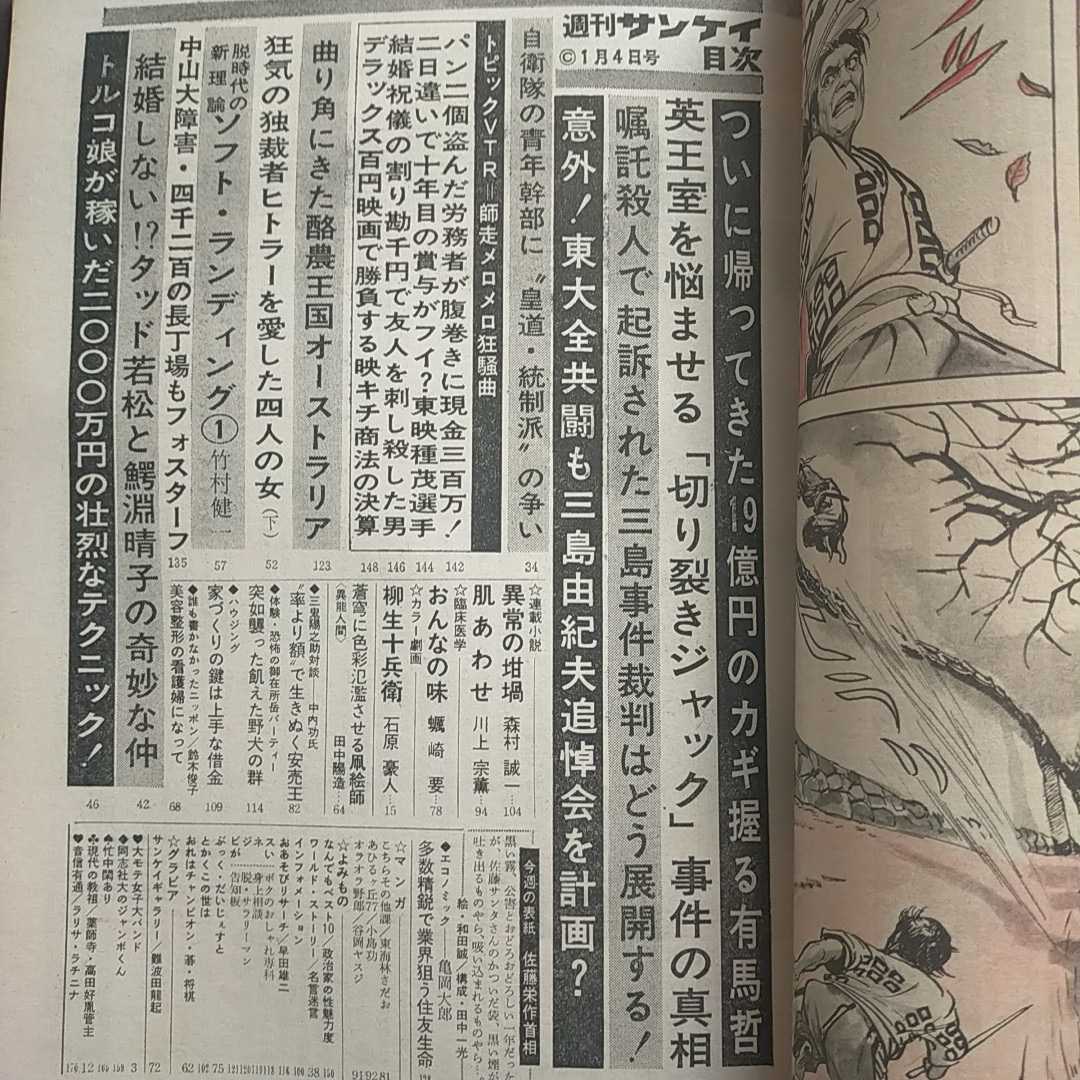 週刊サンケイ
目次
©1月4日号
ついに帰ってきた19億円のカギ握る有馬哲
英王室を悩ませる「切り裂きジャック」事件の真相
嘱託殺人で起訴された三島事件裁判はどう展開する!
意外!東大全共闘も三島由紀夫追悼会を計画?
自衛隊の青年幹部に〝皇道・統制派〟の争い
34
トピックVTR=師走メロメロ狂騒曲
パン二個盗んだ労務者が腹巻きに現金三百万!
142
二日違いで十年目の賞与がフイ?東映種茂選手
144
結婚祝儀の割り勘千円で友人を刺し殺した男
146
デラックス百円映画で勝負する映キチ商法の決算
148
曲り角にきた酪農王国オーストラリア
123
狂気の独裁者ヒトラーを愛した四人の女(下)
52
脱時代の新理論 ソフト・ランディング① 竹村健一
57
中山大障害・四千二百の長丁場もフォスターフ
135
結婚しない!?タッド若松と鰐淵晴子の奇妙な仲
42
トルコ娘が稼いだ二〇〇〇万円の壮烈なテクニック!
46
☆連載小説
異常の坩堝 森村誠一 104
肌あわせ 川上宗薫 94
☆臨床医学
おんなの味 蠣崎要 78
☆カラー劇画
柳生十兵衛 石原豪人 15
蒼穹に色彩氾濫させる凧絵師
〈異能人間〉 田中陽造 64
◆三鬼陽之助対談 中内功氏
〝率より額〟で生きぬく安売王 82
◆体験・恐怖の御在所岳パーティー
突如襲った飢えた野犬の群 114
◆ハウジング
家づくりの鍵は上手な借金 109
◆誰も書かなかったニッポン/鈴木俊子
美容整形の看護婦になって 68
今週の表紙 佐藤栄作首相
黒い霧、公害とおどろおどろしい一年だった
が、佐藤サンタさんのかついだ袋、黒い煙が
吐き出るものやら、吸い込まれるものやら…
絵・和田誠/構成・田中一光
◆エコノミック 亀岡大郎
多数精鋭で業界狙う住友生命
☆マンガ
こちらその他課/東海林さだお 81
あひるヶ丘77/小島功 92
オラオラ野郎/谷岡ヤスジ 91
☆よみもの
なんでもベスト10/政治家の性魅力度 150
ワールド・ストーリー/名言迷言 38
インフォメーション 100
おあそびリサーチ/早田雄二 116
スい…ボクのおしゃれ専科
ネ…身上相談
ジ…脱・サラリーマン
ビが…告知板
ぶっく・だいじぇすと
とかくこの世は 75
おれはチャンピオン・碁・将棋 102
☆グラビア 62
サンケイギャラリー/難波田龍起 72
♥大モテ女子大バンド 3
♠同志社大のジャンボくん
♠忙中閑あり
♣現代の教祖 薬師寺・高田好胤管主 12
♥音信有通/ラリサ・ラチニナ 176